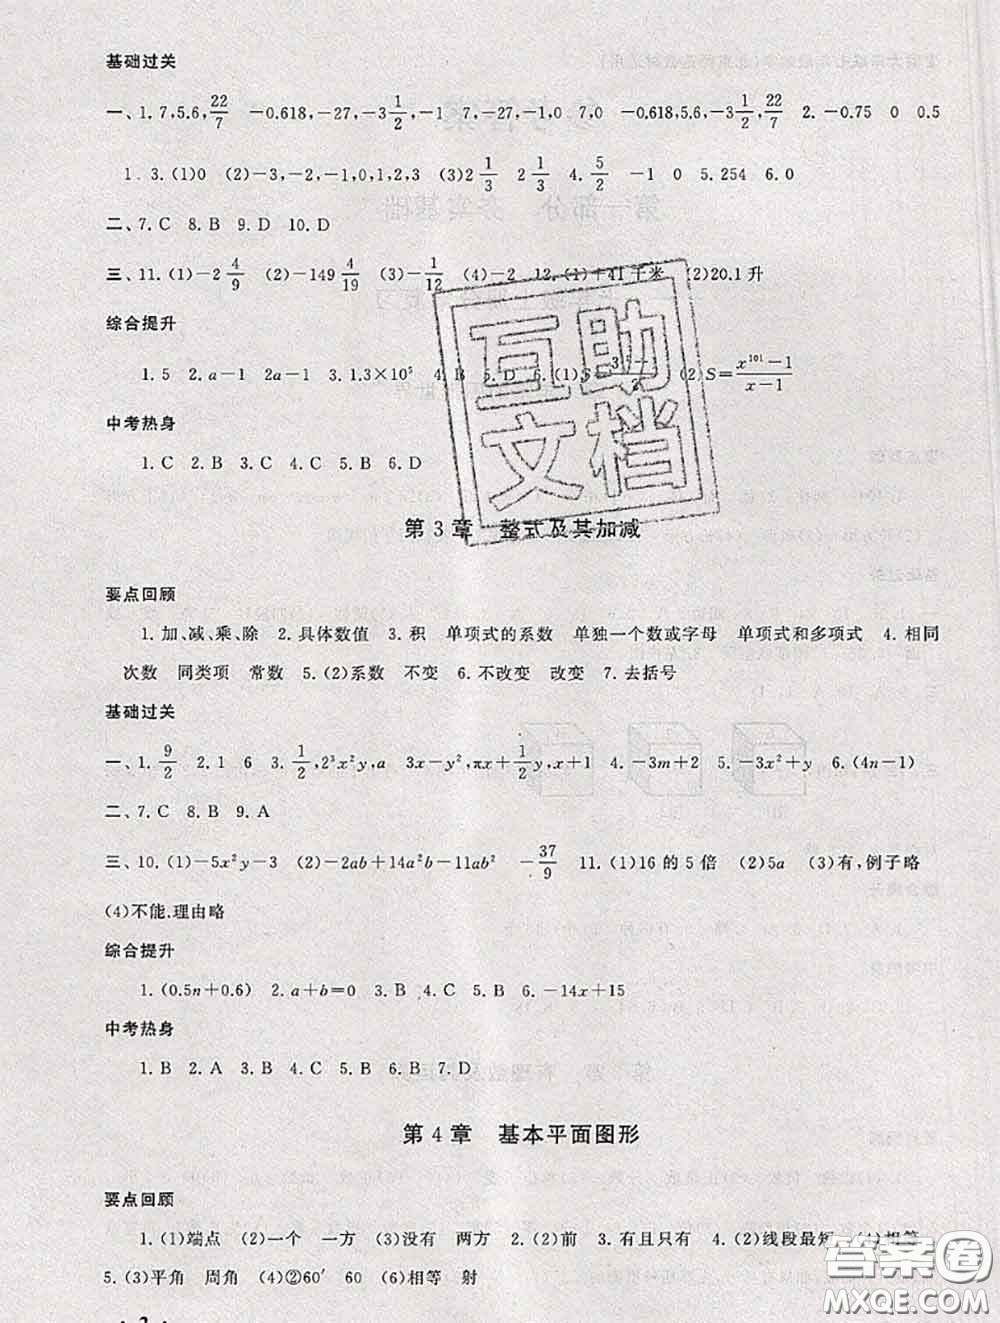 基础过关
一、1. 7,5.6,22/7 －0.618,－27,－3 1/2,－1 7,－27,－1,0 7 －0.618,5.6,－3 1/2,22/7 2. －0.75 0 0.5
1. 3. (1)0 (2)－3,－2,－1,0,1,2,3 (3)2 1/3 2 1/3 4. 5/2 －1 0 5. 254 6. 0
二、7. C 8. B 9. D 10. D
三、11. (1)－2 4/9 (2)－149 4/19 (3)－1/12 (4)－2 12. (1)＋41千米 (2)20.1升
综合提升
1. 5 2. a－1 2a－1 3. 1.3×10⁵ 4. B 5. D 6. (1)S= (2)S=(x¹⁰¹－1)/(x－1)
中考热身
1. C 2. B 3. C 4. C 5. B 6. D
第3章 整式及其加减
要点回顾
1. 加、减、乘、除 2. 具体数值 3. 积 单项式的系数 单独一个数或字母 单项式和多项式 4. 相同
次数 同类项 常数 5. (2)系数 不变 6. 不改变 改变 7. 去括号
基础过关
一、1. 9/2 2. 1 6 3. 1/2,2³x²y,a 3x－y²,πx＋1/2y,x＋1 4. －3m＋2 5. －3x²＋y 6. (4n－1)
二、7. C 8. B 9. A
三、10. (1)－5x²y－3 (2)－2ab＋14a²b－11ab² －37/9 11. (1)16的5倍 (2)5a (3)有,例子略
(4)不能.理由略
综合提升
1. (0.5n＋0.6) 2. a＋b=0 3. B 4. C 5. B 6. －14x＋15
中考热身
1. B 2. A 3. B 4. C 5. B 6. B 7. D
第4章 基本平面图形
要点回顾
1. (1)端点 (2)一个 一方 (3)没有 两方 2. (2)前 3. 有且只有 4. (2)线段最短 (4)相等
5. (3)平角 周角 (4)②60′ 60 (6)相等 射
· 2 ·
互助
文档
答案圈
MXQE.COM